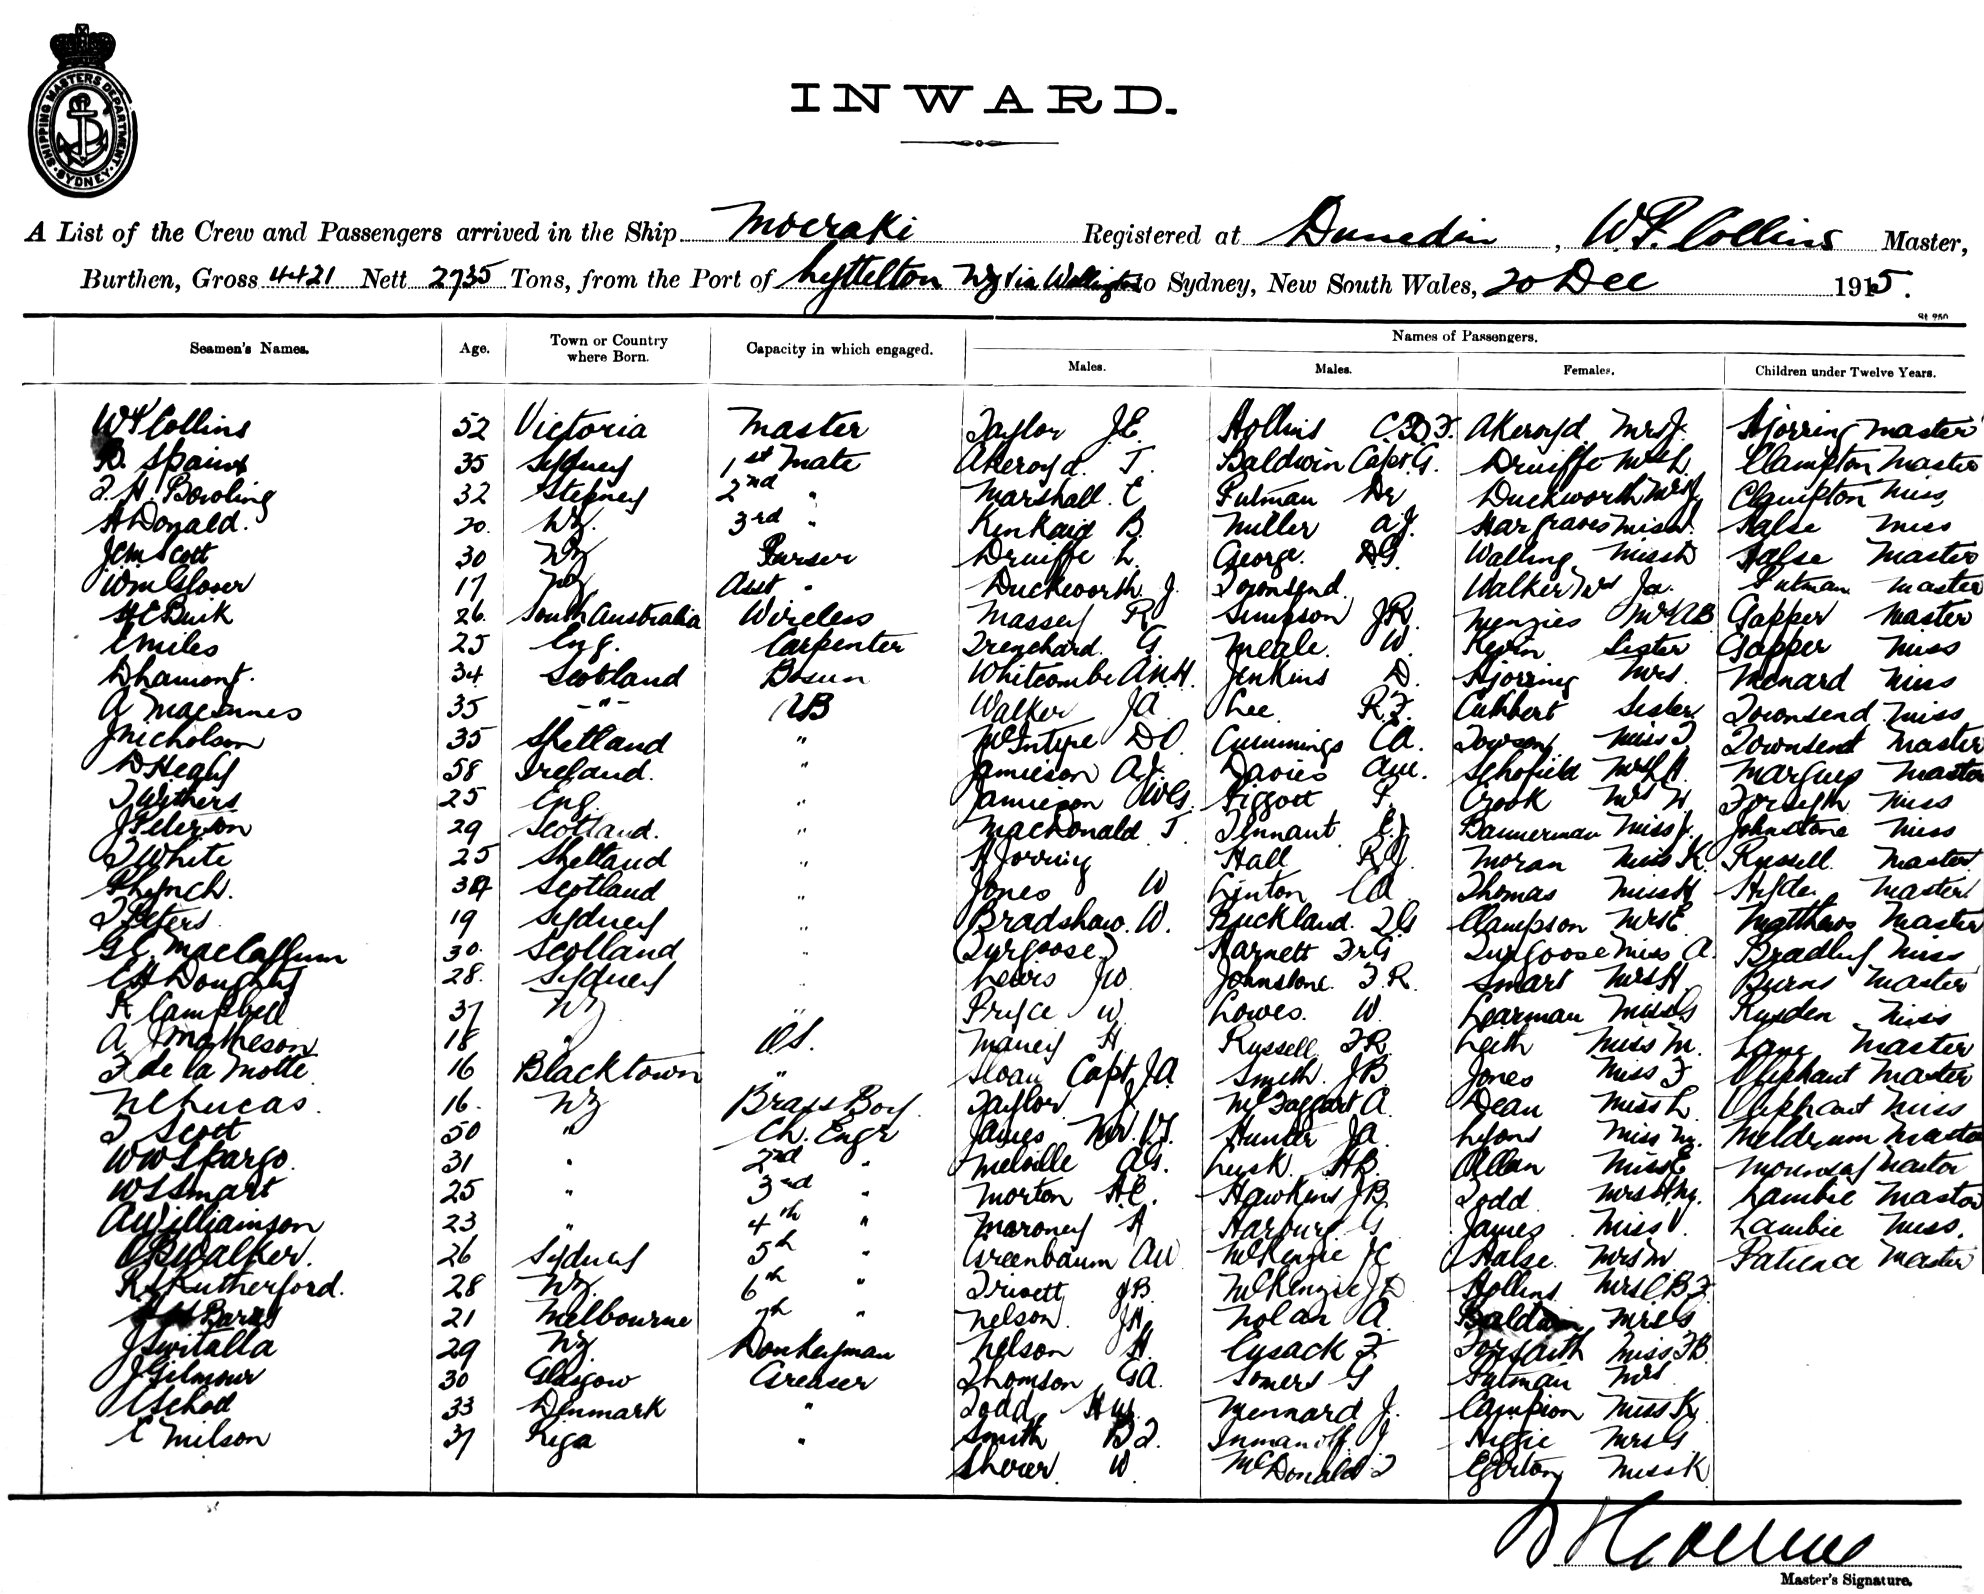 SHIPPING MASTERS DEPARTMENT SYDNEY
INWARD.
A List of the Crew and Passengers arrived in the Ship Moeraki Registered at Dunedin, W.F. Collins Master,
Burthen, Gross 4421 Nett 2735 Tons, from the Port of Lyttelton NZ via Wellington to Sydney, New South Wales, 20 Dec 1915.
Seamen's Names. Age. Town or Country where Born. Capacity in which engaged. Names of Passengers.
Males. Males. Females. Children under Twelve Years.
Collins 52 Victoria Master Taylor J.E. Hollins C.B.F. Akeroyd Mrs J. Hjorring Master
35 Sydney 1st Mate Akeroyd. T. Baldwin Capt. G. Druiffe Mrs L. Clampton Master
Bowling 32 Stepney 2nd " Marshall. C Putman Dr Duckworth Mrs J Clampton Miss
A Donald. 20. NZ. 3rd " Kenkaid B. Miller A.J. Hargraves Miss Halse Miss
Scott 30 NZ Purser Druiffe L. George. Walling Miss Halse Master
Wm Glover 17 NZ Asst " Duckworth. J. Townsend. Walker Mrs Ja. Putman Master
26. South Australia Wireless Massey R Simpson J.R. Menzies Mrs A.B Gapper Master
C Miles 25 Eng. Carpenter Trenchard. G. Meale. W. Kevin Sister Gapper Miss
D Lamont. 34 Scotland Bosun Whitcombe A.N.H. Jenkins D. Hjorring Mrs. Menard Miss
A MacInnes 35 -"- AB Walker JA Lee R.F. Cuthbert Sister Townsend Miss
J Nicholson 35 Shetland " McIntyre D.C. Cummings CA. Towson Miss Townsend Master
D Hegly 58 Ireland. " Jamieson A.J. Davies Schofield Mrs Master
T Withers 25 Eng. " Jamieson Piggott F. Crook Mrs W Forsyth Miss
J Peterson 29 Scotland. " MacDonald T Tennant E.J. Bannerman Miss J. Johnstone Miss
T White 25 Shetland " Hjorring Hall R.J. Moran Miss K. Russell. Master
P Lynch. 34 Scotland " Jones W Linton CA Thomas Miss H Hyde Master
T Peters 19 Sydney " Bradshaw. W. Buckland. Clampson Mrs E. Matthews Master
G.C. MacCallum 30. Scotland " (Turgoose) Harnett Turgoose Miss A. Bradley Miss
C H Doughty 28. Sydney " Lewis JW. Johnstone. F.R. Smart Mrs H. Burns Master
R Campbell 37 NZ " Pryce W Lowes. W. Learman Miss G Rysden Miss
A J Matheson 18 " O.S. Maney H. Russell F.R. Leith Miss M. Lane Master
F de la Motte 16 Blacktown " Sloan Capt J.A. Smith. JB Jones Miss F Oliphant Master
Lucas. 16. NZ Brass Boy Taylor J. McTaggart A. Dean Miss L Oliphant Miss
T Scott 50 " Ch. Engr James Hunter JA. Lyons Miss M. Meldrum Master
W W Spargo. 31 " 2nd " Melville AG. Lusk. H.B. Allan Miss E Master
W S Smart 25 " 3rd " Morton H.C. Hawkins J.B. Todd Mrs H.M. Lambie Master
A Williamson 23 " 4th " Maroney H Harburg. G. James Miss Lambie Miss.
Walker. 26 Sydney 5th " Greenbaum AW McKenzie JC Halse. Mrs W. Patience Master
Rutherford. 28 NZ. 6th " Trivett J.B. McKenzie J.D. Hollins Mrs C.B.F.
21 Melbourne 7th " Nelson. J.H. Nolan A. Baldwin Mrs G
J Switalla 29 NZ. Donkeyman Nelson H. Cusack F. Forsaith Miss F.B.
J Gilmour 30 Glasgow Greaser Thomson GA. Somers G Putman Mrs
Schod 33 Denmark " Todd Mennard J. Campion Miss K.
C Milson 37 Riga " Smith Inmanoff J Higgie Mrs G
Sherer W. McDonald Egerton Miss K
Collins
Master's Signature.